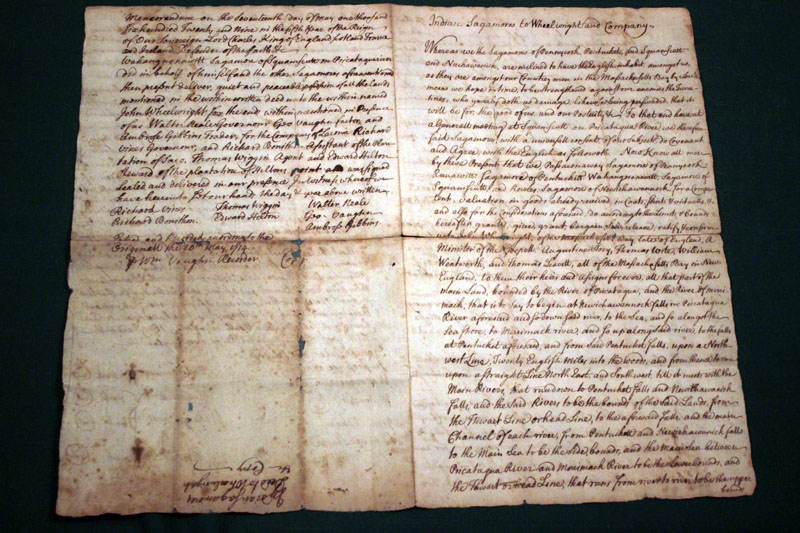 Memorandum on the Seventeenth day of May one thousand
Six hundred Twenty and Nine in the fifth year of the Reign
of Our Sovereign Lord Charles King of England Scotland France
and Ireland Defender of the faith &c
Wahangnonnawitt Sagamore of Squamscutt in Piscataquacon
did in behalf of himself and the other Sagamores
then present deliver quiet and peaceable of all the Lands
mentioned in the within written deed unto the within named
John Wheelwright for the ends within mentioned in Presence
of us Walter Neale Governor Geo Vaughan factor and
Ambrose Gibbins Trader, for the Company of Laconia Richard
Vines Governour, and Richard Bonithon Assistant of the Plan-
tation of Saco, Thomas Wiggin Agent and Edward Hilton
Steward of the plantation of Hiltons point and was sign
Sealed and delivered in our presence In witness whereof we
have hereunto Set our hand the day & year above written
Richard Vines Thomas Wiggin Walter Neale
Richard Bonithon Edward Hilton Geo Vaughan
Ambrose Gibbins
and according to the
Originall the May 1714
Wm Vaughan Recorder
Indian Sagamores to Wheelwright and Company
Whereas we the Sagamores of Pennycook, Pentucket, and Squamscutt
and Nuchawanick, are inclined to have the English inhabit amongst us,
as they are amongst our Countrymen in the Massachusetts Bay by which
means we hope in time to be strengthened against our enemies the Tarra-
tines, who yearly doth us damage Likewise being perswaded, that it
will be for the good of us and our Posterity &c To that end have at
a Generall meeting at Squamscutt on Piscataqua River, we the afore-
said Sagamores, with a universall consent of our Subjects, do Covenant
and Agree with the English as followeth Now Know all men
by these Presents that we Passaconaway Sagamore of Pennycook
Runawitt Sagamore of Pentuckett Wahangnonnawitt Sagamore of
Squamscutt, and Rowls Sagamore of Nuchawannack for a Compe-
tent Valuation in goods already received in Coats, Shirts & victualls
and also for the considerations aforesaid, do according to the Limits & bounds
hereafter granted, give, grant bargain, Sell, release, ratify & confirm
unto John Wheelright, of the Massachusetts Bay late of England, A
Minister of the Gospell Augustine Story, Thomas Wite, William
Wentworth, and Thomas Levett, all of the Massachusetts Bay in New
England, to them their heirs and assigns forever, all that part of the
main Land, bounded by the River of Piscataqua, and the River of Meri-
mack, that is to say to begin at Newichawannock falls in Piscataqua
River aforesaid and So down Said river, to the Sea, and So alongst the
Sea shore, to Merimack river, and So up along Said river, to the falls
at Pentucket aforesaid, and from said Pentucket falls, upon a North
west Line, Twenty English miles into the woods, and from thence to run
upon a straight Line North East, and South west till it meet with the
Main Rivers, that run down to Pentucket falls and Newichawannock
falls, and the Said Rivers to be the bounds of the Said Lands, from
the Thwart Line or head Line, to the aforesaid falls, and the main
Channel of each river, from Pentucket and Newichawannock falls
to the Main Sea to be the Side bounds, and the Main Sea between
Piscataqua River and Merimack River to be the Lower bounds, and
the Thwart or head Line, that runs from river to river to be the upper
bound